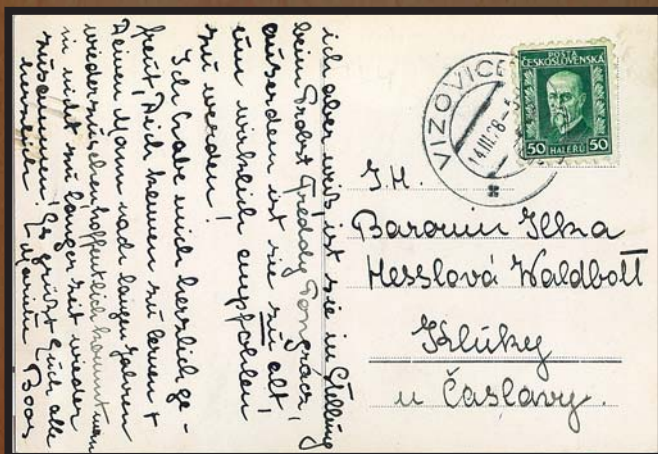 ich aber weiß ist sie in Stellung
beim Probst Freddy Pongrácz,
außerdem ist sie zu alt,
um wirklich empfohlen
zu werden!
Ich habe mich herzlich ge-
freut, Dich kennen zu lernen +
Deinen Mann nach langen Jahren
wiederzusehen hoffentlich kommt man
in nicht zu langer Zeit wieder
zusammen! Es grüßt Euch alle
herzlich Boos
POŠTA
ČESKOSLOVENSKÁ
50 HALÉŘŮ 50
VIZOVICE
14.III.28-5
I.H.
Baronin Ilka
Hesslová Waldbott
Klúky
u Čáslavy.